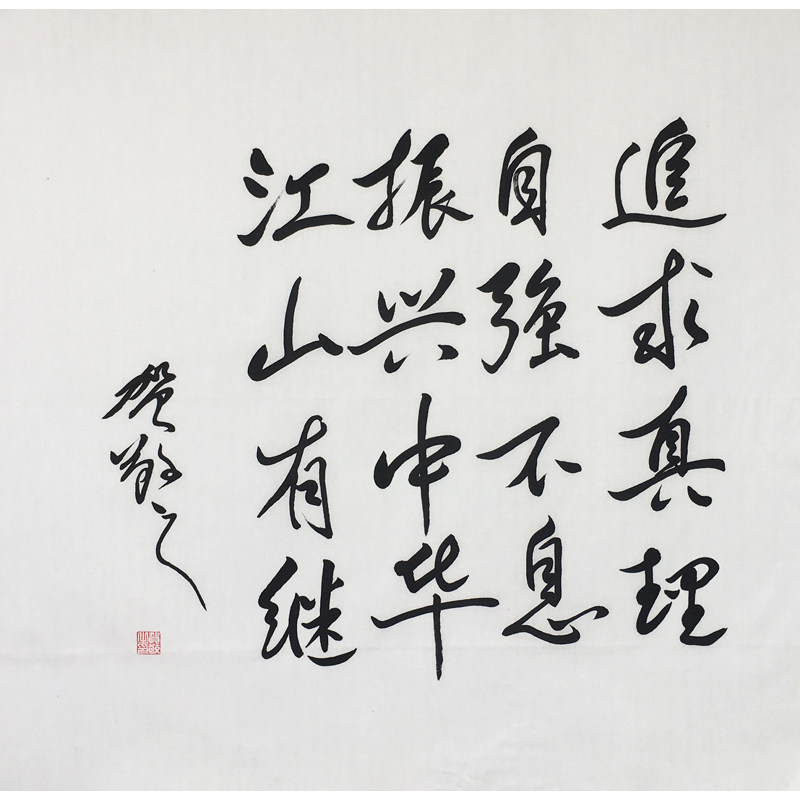 追求真理
自强不息
振兴中华
江山有继
贺敬之